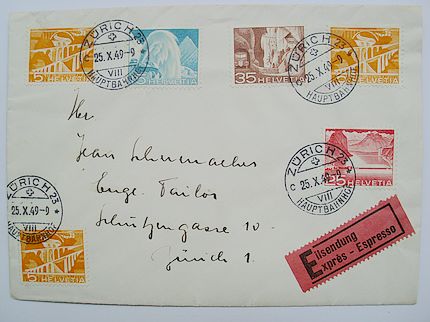 ZÜRICH 23
25.X.49-9
VIII
HAUPTBAHNHOF
5 HELVETIA
HELVETIA
35 HELVETIA
ZÜRICH 23
25.X.49-9
VIII
HAUPTBAHNHOF
5 HELVETIA
Hr.
Jean Schumacher
ZÜRICH 23
c 25.X.49-9
VIII
HAUPTBAHNHOF
25 HELVETIA
Engl. Tailor
ZÜRICH 23
25.X.49-9
VIII
HAUPTBAHNHOF
5 HELVETIA
Schützengasse 10
Zürich 1.
Eilsendung
Exprès - Espresso